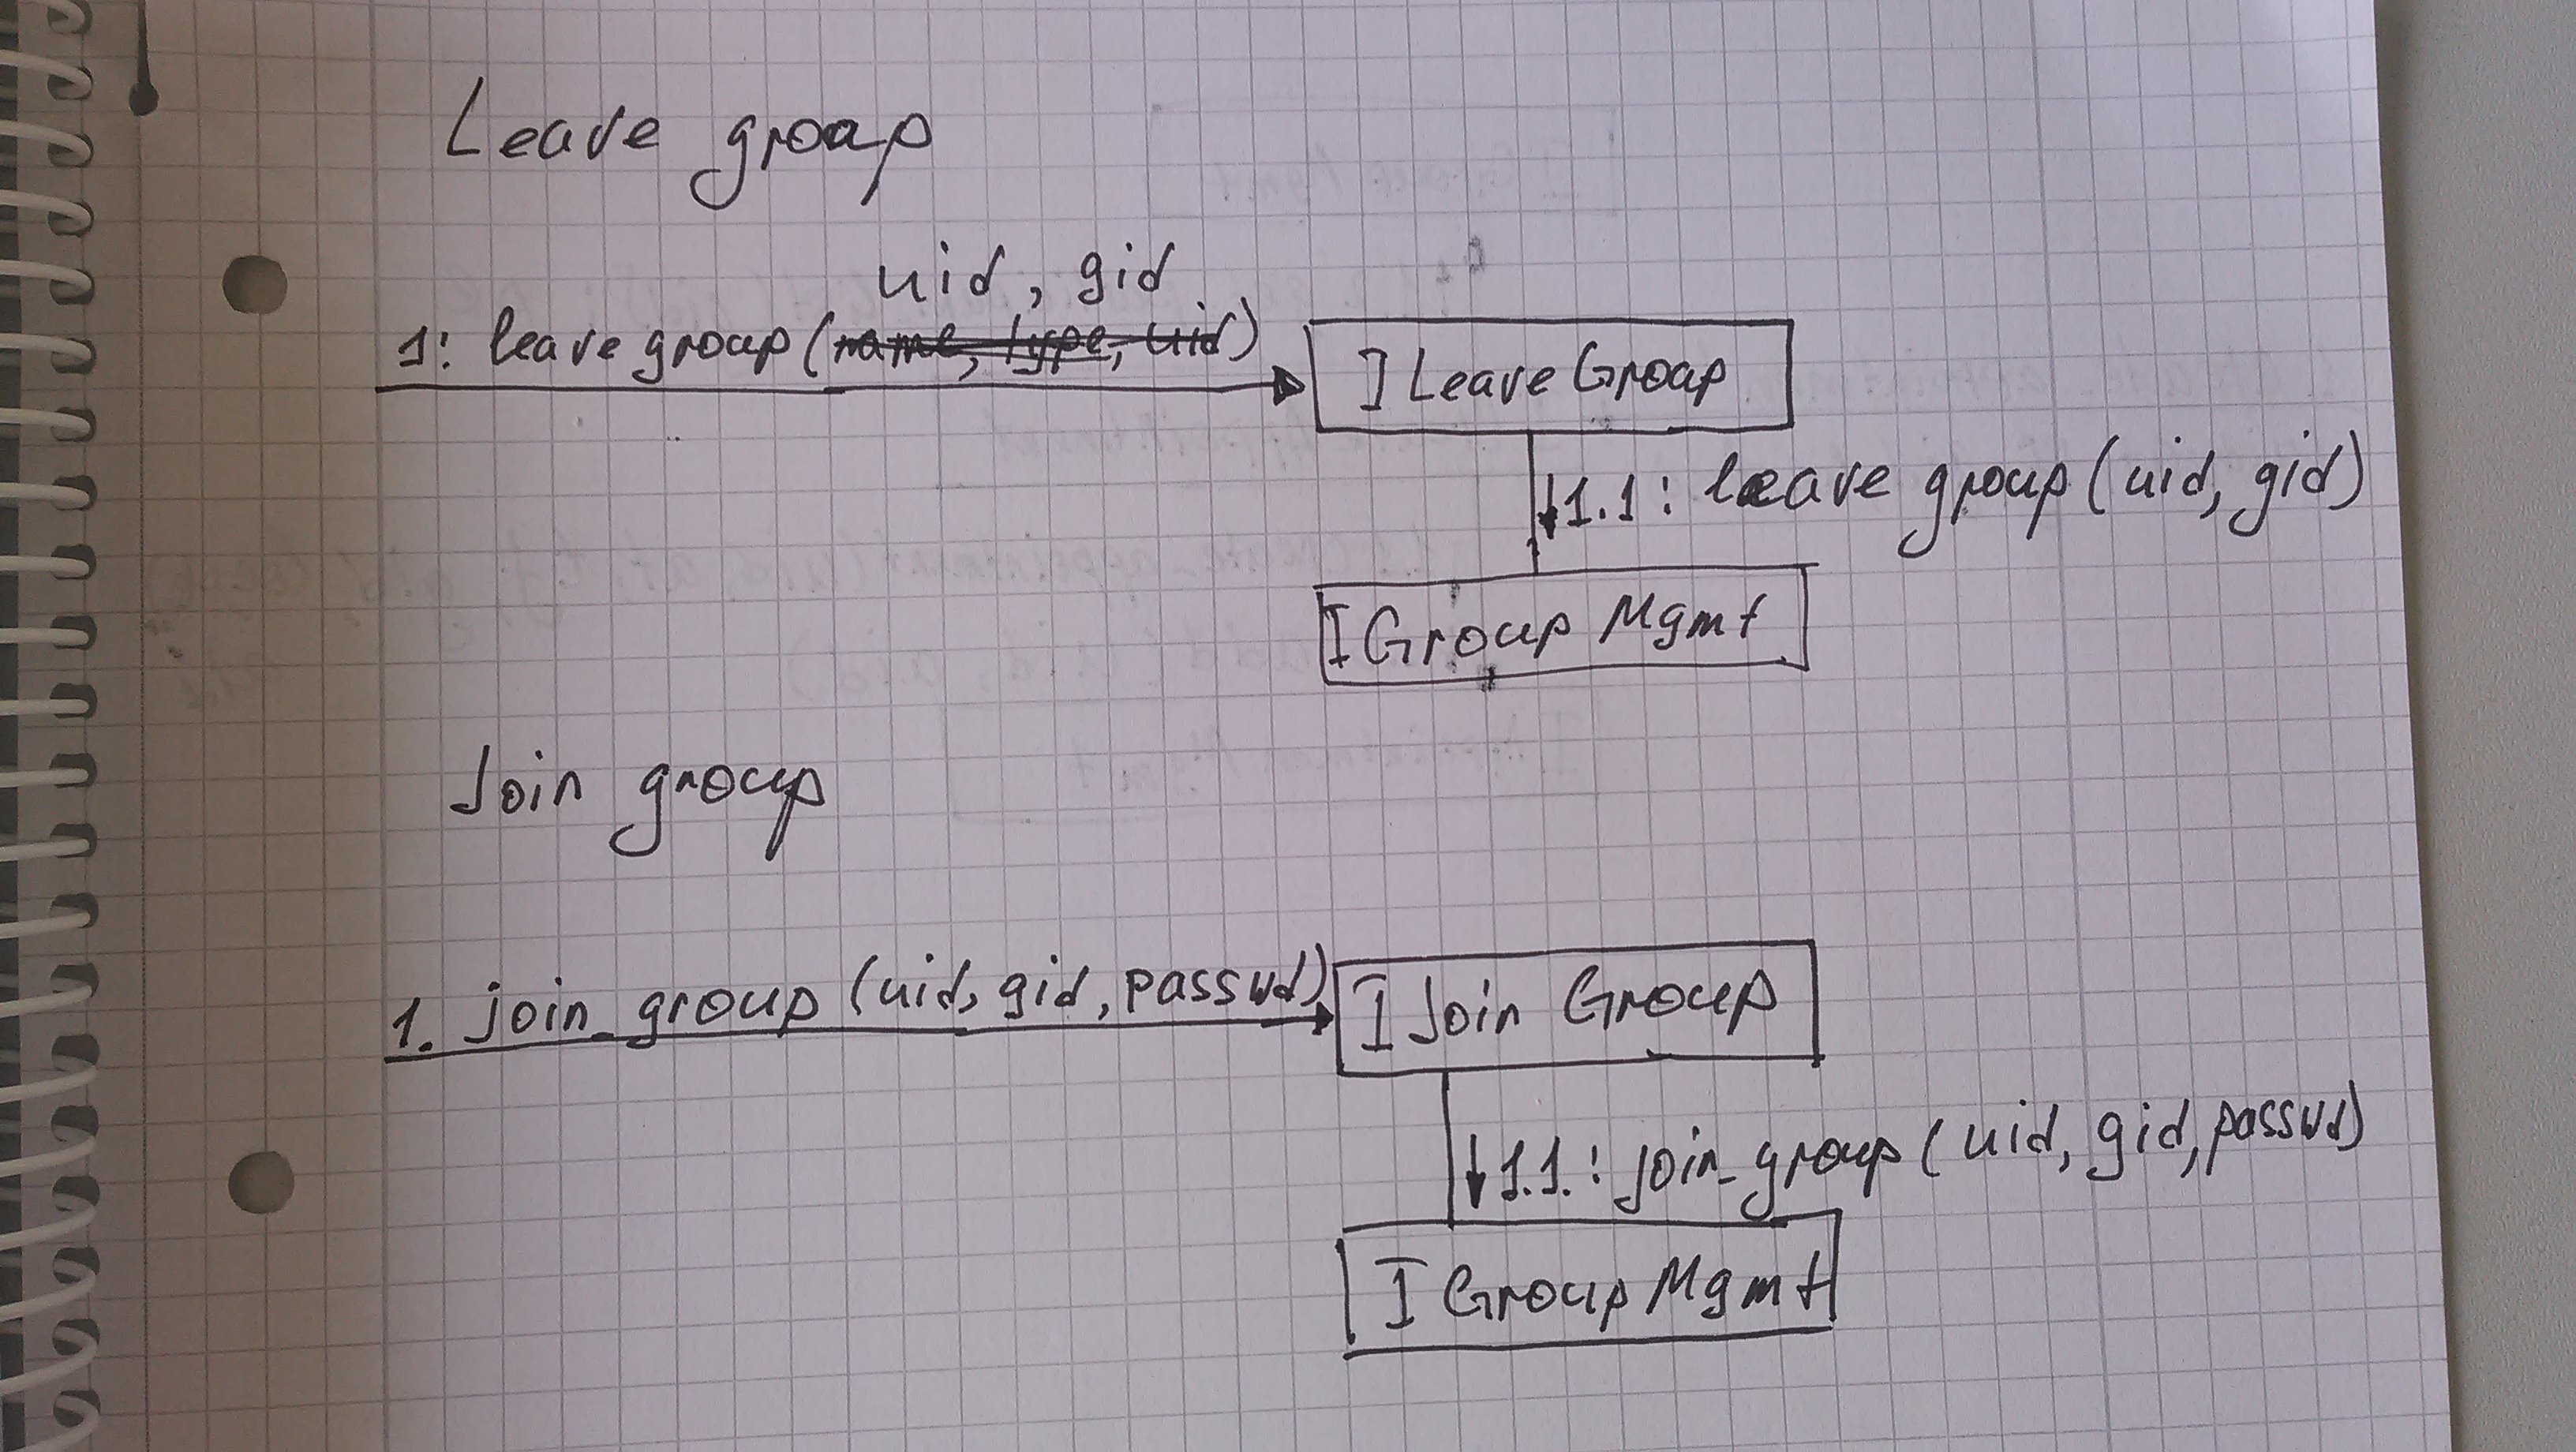 Leave group
uid, gid
1: leave group (name, type, uid)
I Leave Group
1.1: leave group (uid, gid)
I Group Mgmt
Join group
1. join_group (uid, gid, passwd)
I Join Group
1.1.: join_group (uid, gid, passwd)
I Group Mgmt